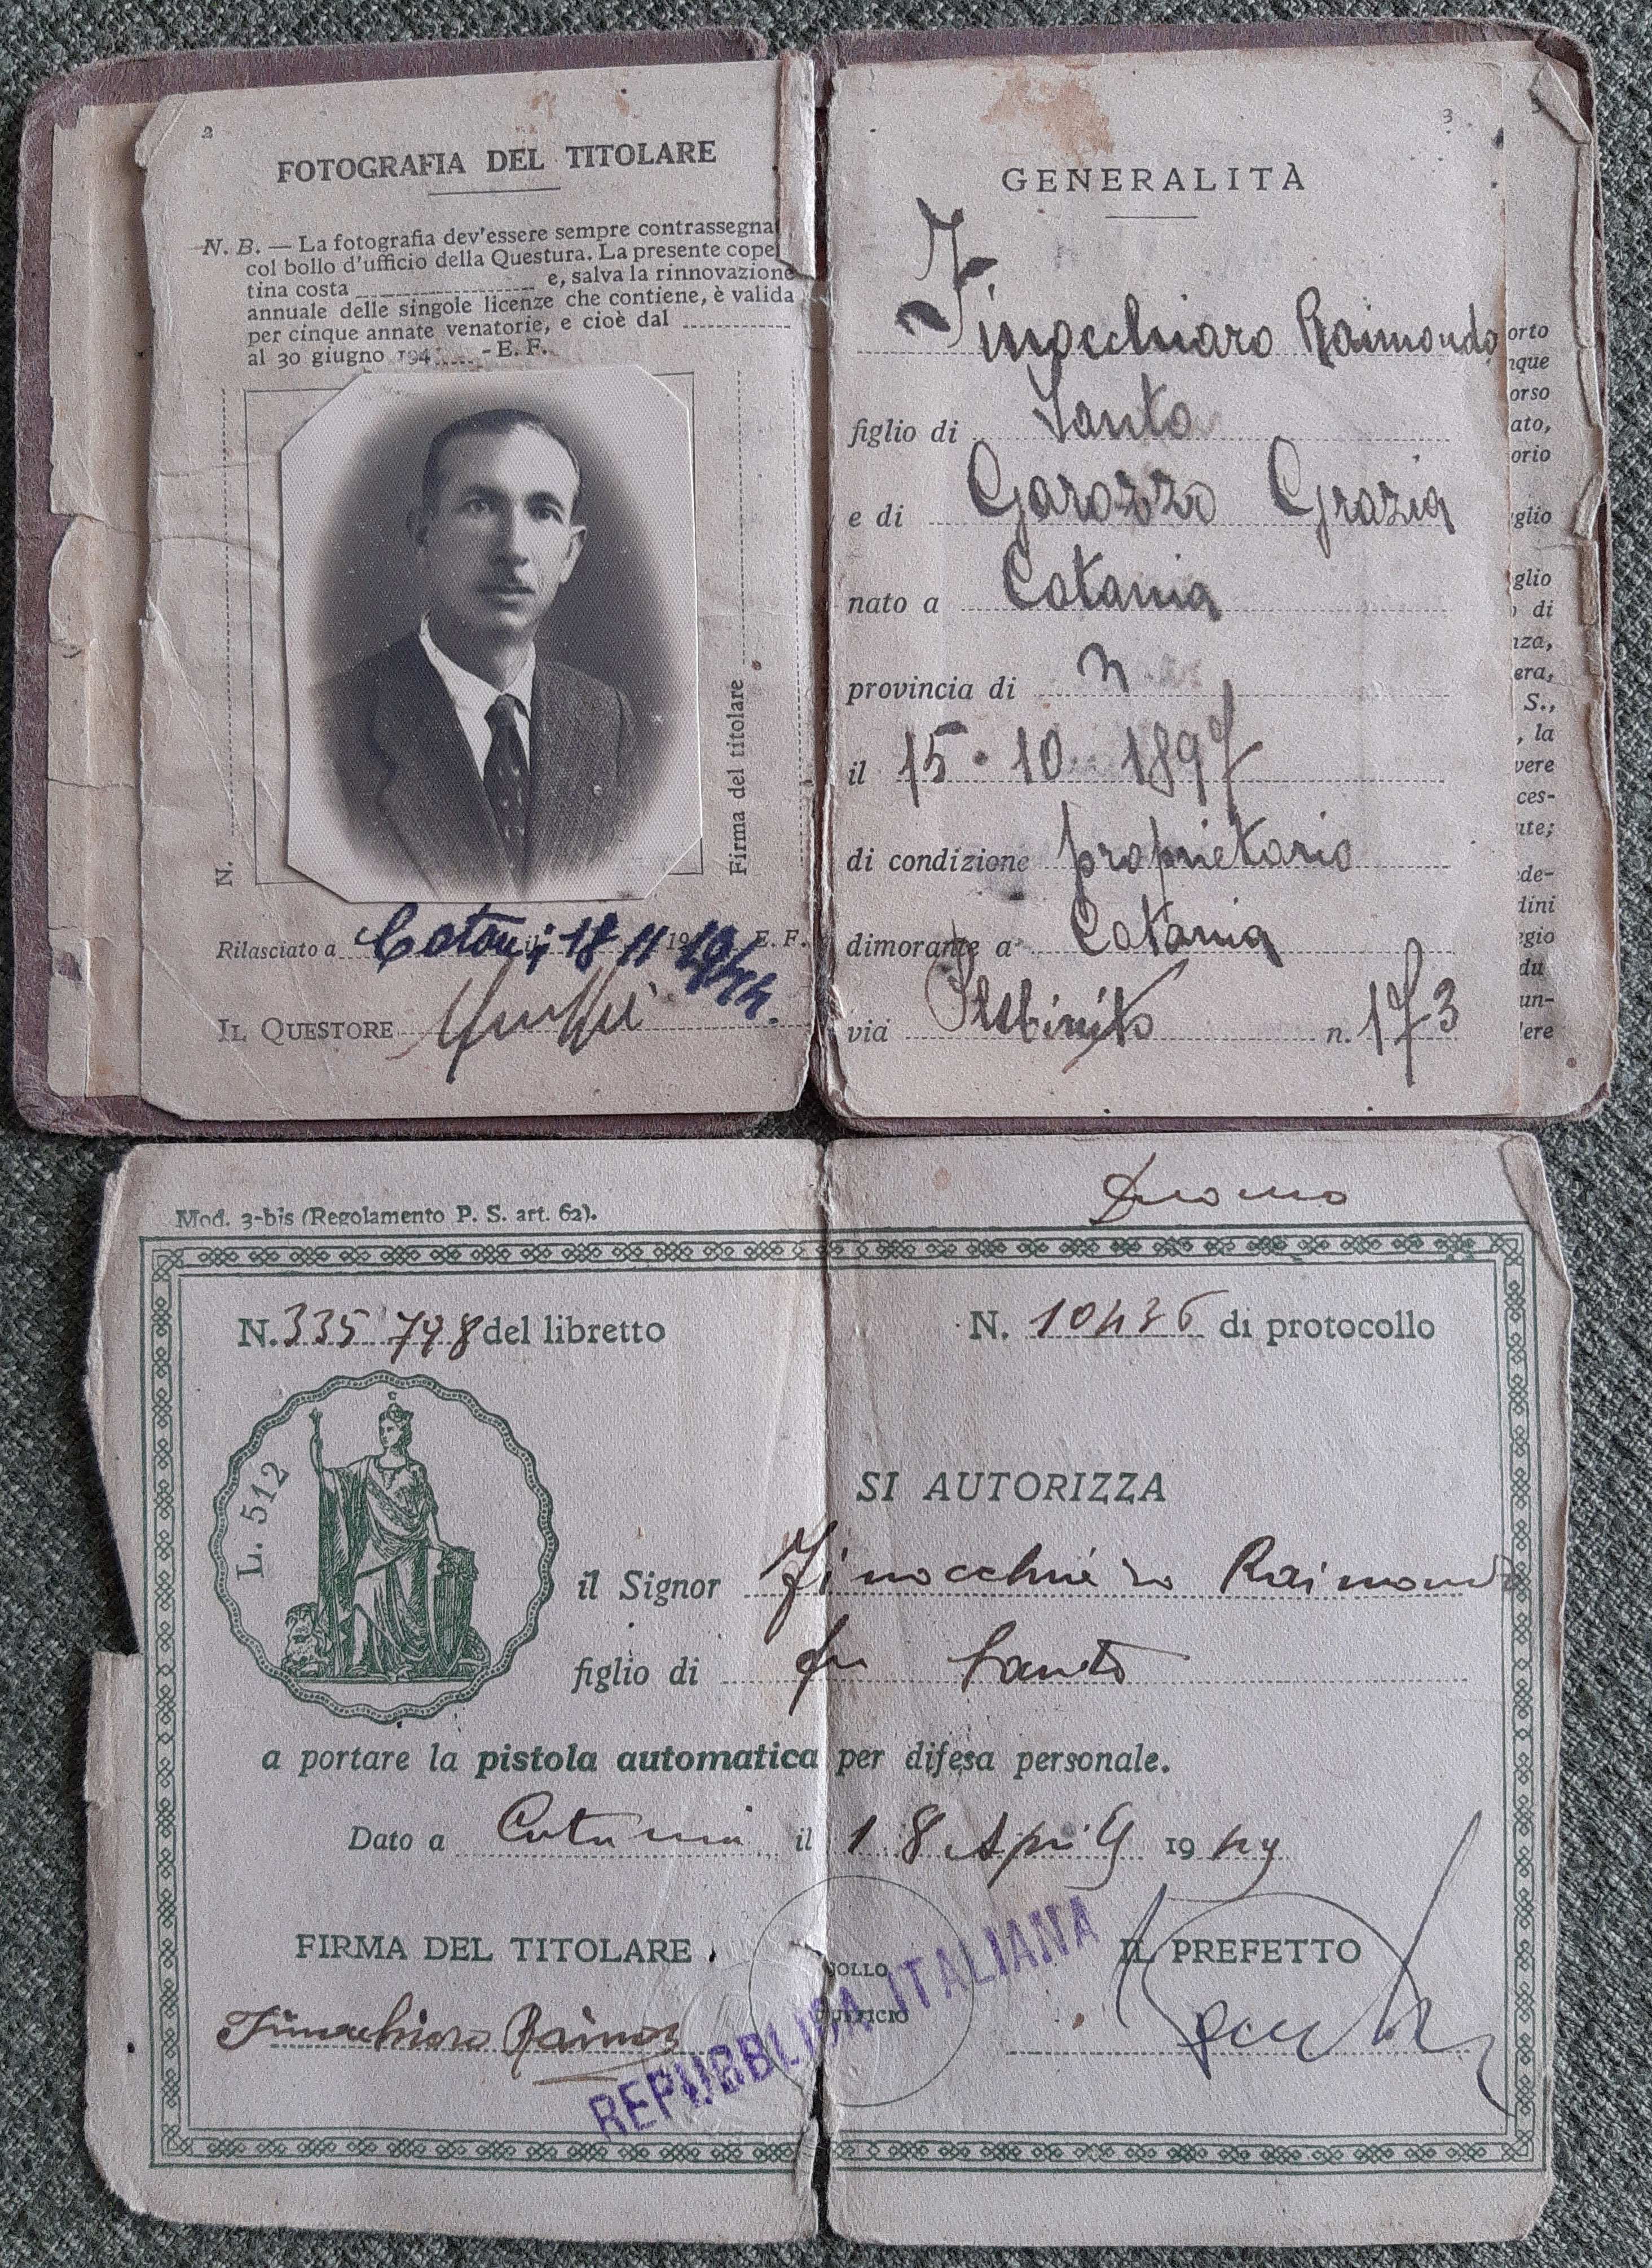 2
FOTOGRAFIA DEL TITOLARE
N. B. — La fotografia dev'essere sempre contrassegna
col bollo d'ufficio della Questura. La presente coper
tina costa e, salva la rinnovazione
annuale delle singole licenze che contiene, è valida
per cinque annate venatorie, e cioè dal
al 30 giugno 194 - E. F.
N.
Firma del titolare
Rilasciato a Catania 18 11 19 E. F.
IL QUESTORE
3
GENERALITÀ
Finocchiaro Raimondo
figlio di Santo
e di Garozzo Grazia
nato a Catania
provincia di
il 15.10.1897
di condizione proprietario
dimorante a Catania
via n. 173
orto
nque
orso
ato,
orio
glio
glio
di
nza,
era,
S.,
, la
vere
ces-
ate;
ede-
dini
egio
du
un-
dere
Mod. 3-bis (Regolamento P. S. art. 62).
Duomo
N. 335798 del libretto
N. 10436 di protocollo
L. 512
SI AUTORIZZA
il Signor Finocchiaro Raimondo
figlio di fu Santo
a portare la pistola automatica per difesa personale.
Dato a Catania il 18 Aprile 1949
FIRMA DEL TITOLARE
BOLLO
D'UFFICIO
IL PREFETTO
Finocchiaro Raimon
REPUBBLICA ITALIANA